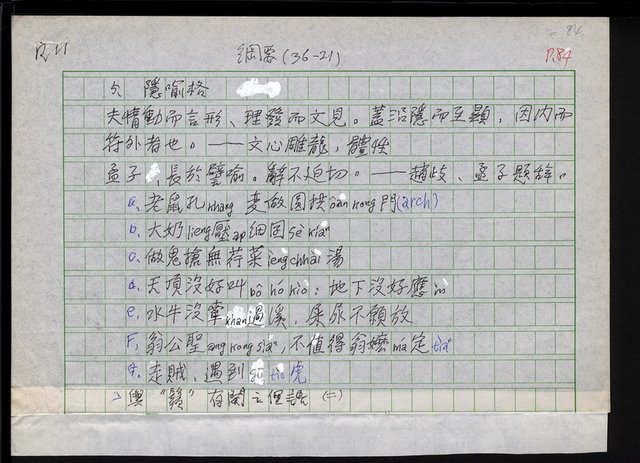 P.11 綱要(36-21) 84
P.84
5、隱喻格
夫情動而言形、理發而文見。蓋沿隱而至顯,因內而
符外者也。——文心雕龍,體性
孟子 ,長於譬喻。辭不迫切。——趙歧、孟子題辭。
a、老鼠孔khang 變做圓拱oân kong門(arch)
b、大奶lieng壓ap細囝sè kiáⁿ
c、做鬼搶無荇菜iengchhài湯
d、天頂沒好叫bô hó kiò;地下沒好應ìn
e、水牛沒牽khan過溪,屎尿不願放
F、翁公聖ang kong siàⁿ,不值得翁嬤má定tiāⁿ
g、走賊,遇到 tio̍h虎
與"鬍"有關之俚諺(二)